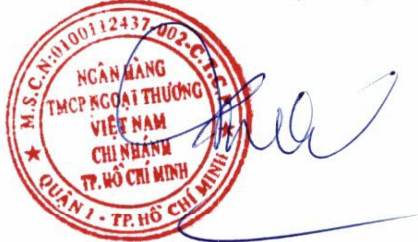 M.S.C.N:0100112437-002-C.T.C.P
NGÂN HÀNG
TMCP NGOẠI THƯƠNG
VIỆT NAM
CHI NHÁNH
TP. HỒ CHÍ MINH
QUẬN 1 - TP. HỒ CHÍ MINH